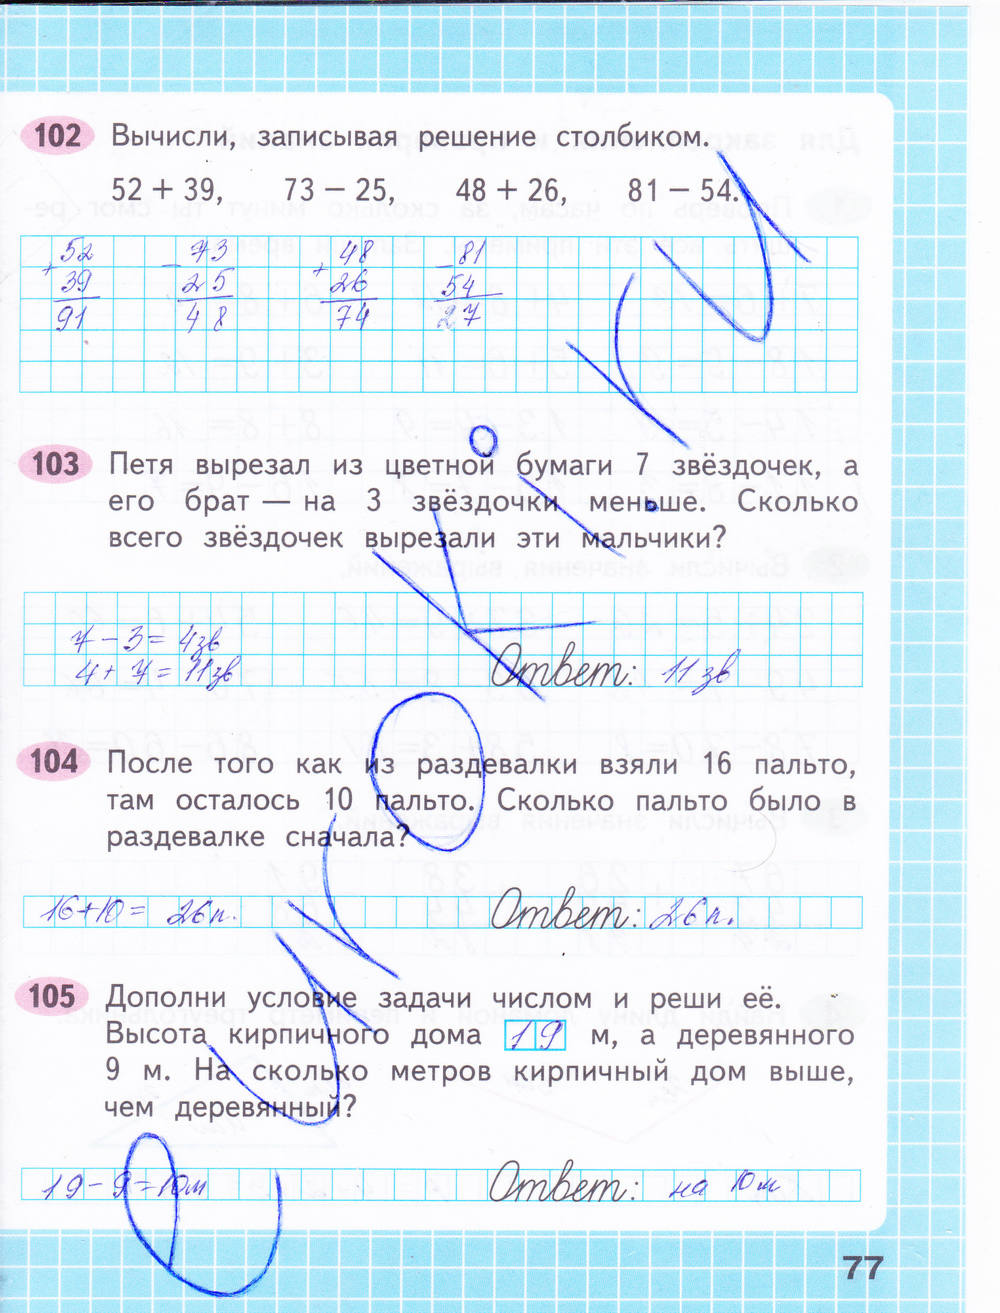 102 Вычисли, записывая решение столбиком.
52 + 39, 73 − 25, 48 + 26, 81 − 54.
+ 52 − 73 + 48 − 81
39 25 26 54
91 48 74 27
103 Петя вырезал из цветной бумаги 7 звёздочек, а
его брат — на 3 звёздочки меньше. Сколько
всего звёздочек вырезали эти мальчики?
7 − 3 = 4зв
4 + 7 = 11зв Ответ: 11 зв
104 После того как из раздевалки взяли 16 пальто,
там осталось 10 пальто. Сколько пальто было в
раздевалке сначала?
16+10 = 26п. Ответ: 26п.
105 Дополни условие задачи числом и реши её.
Высота кирпичного дома 19 м, а деревянного
9 м. На сколько метров кирпичный дом выше,
чем деревянный?
19 − 9 = 10м Ответ: на 10м
77